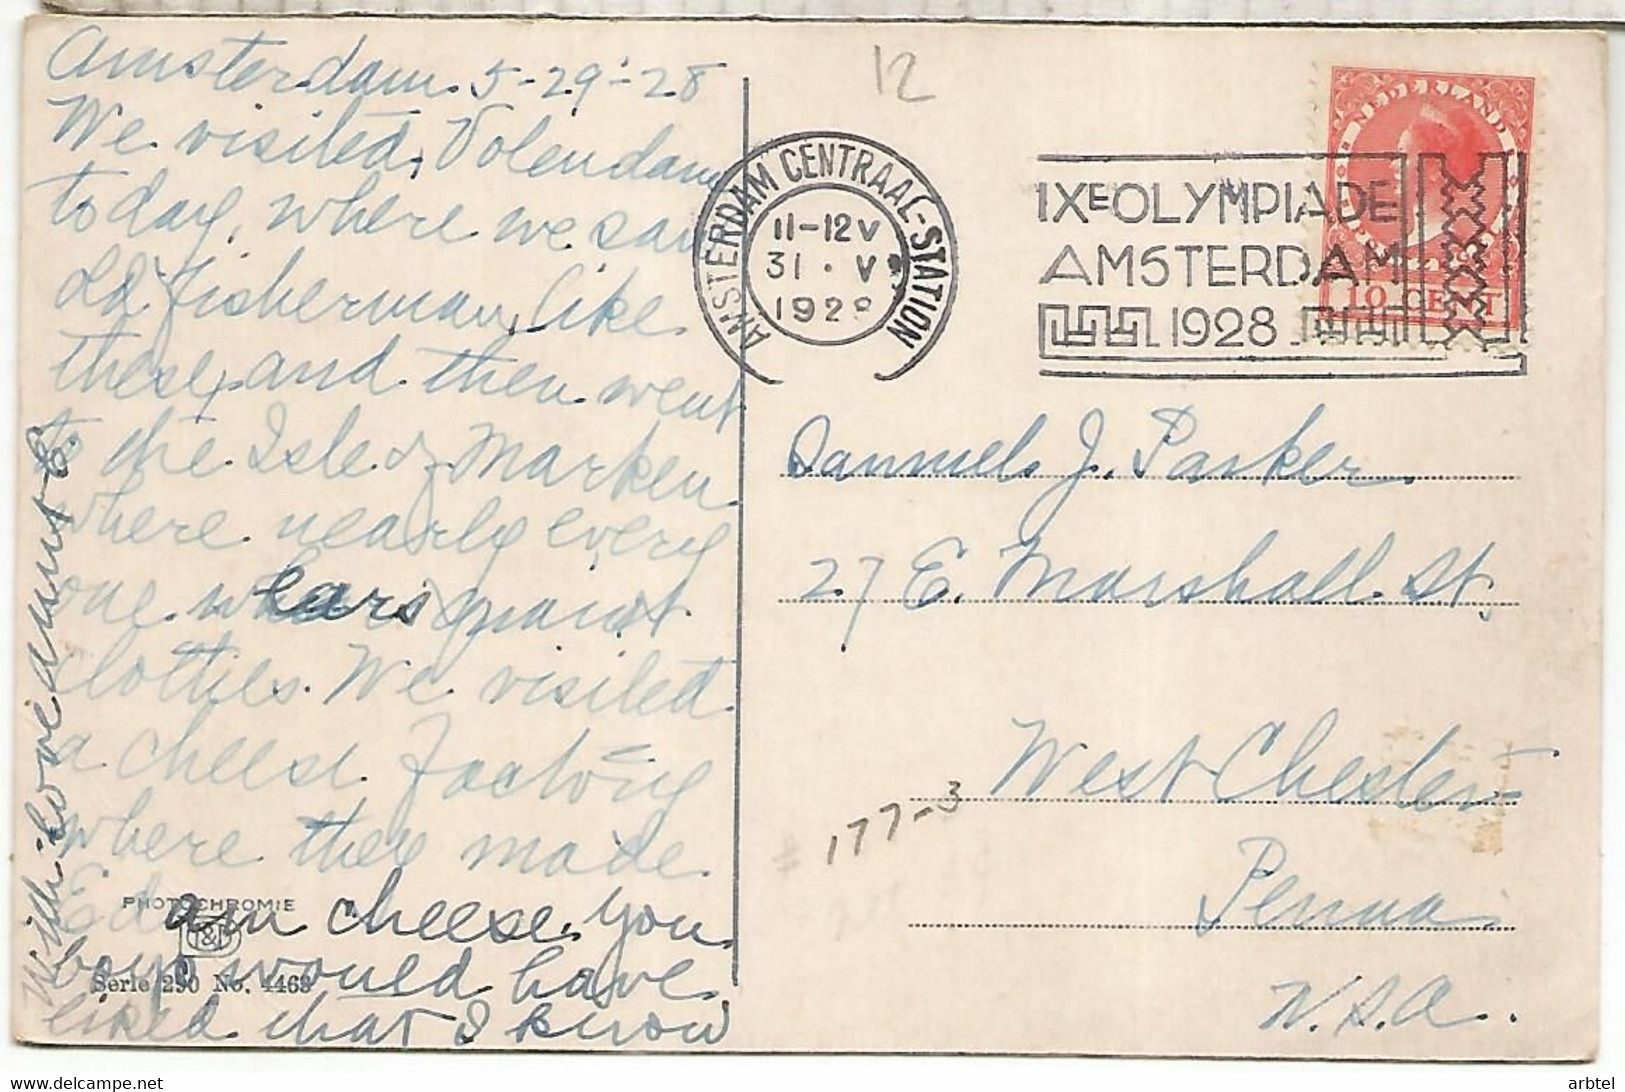 Amsterdam. 5-29'-28
We visited, Volendam
today, where we saw
old fisherman, like
these, and then went
to the Isle of Marken
where nearly every
one wears quaint
clothes. We visited
a cheese factory
where they made
Edam cheese. you
boys would have
liked that I know
With love aunt E.
PHOTOCHROMIE
Serie 290 No. 4463
12
AMSTERDAM CENTRAAL-STATION
11-12 V
31 . V
1928
IXE OLYMPIADE
AMSTERDAM
1928
NEDERLAND
10 CENT
Samuel J. Parker
27 E. Marshall St.
West Chester
Penna
U.S.A.
# 177-3
arbtel